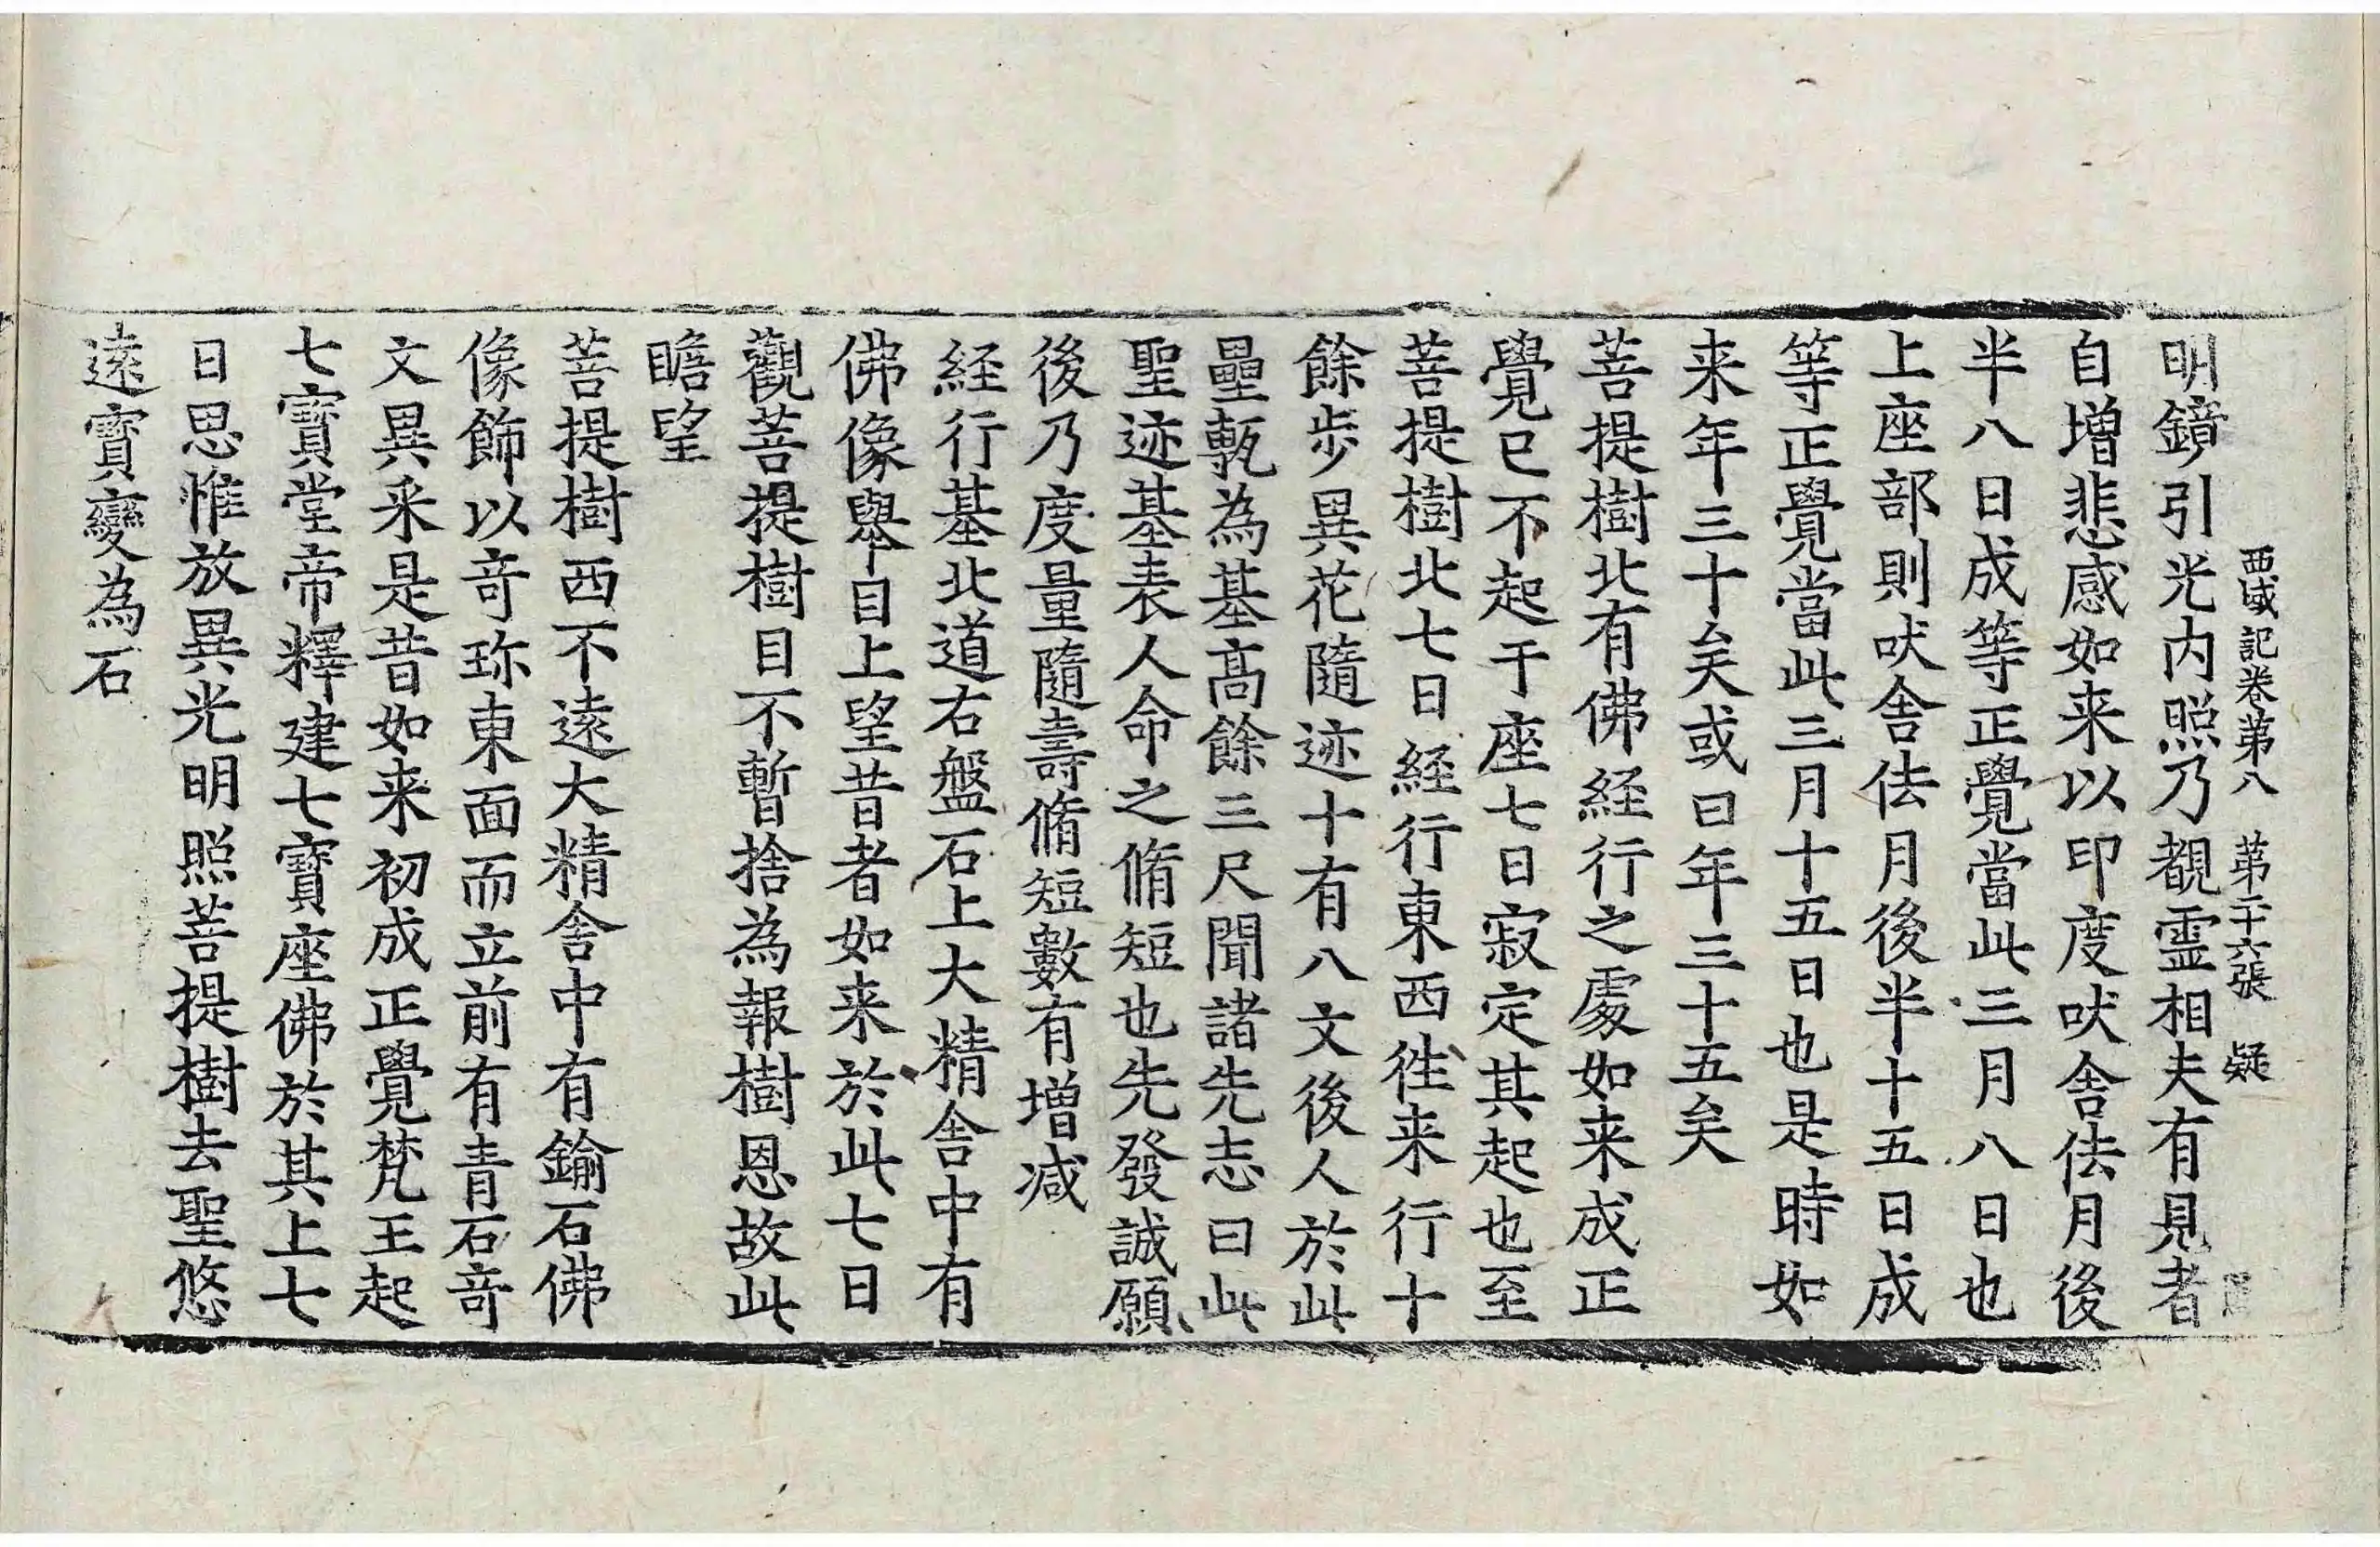 西域記卷第八 第二十六張 疑
明鏡引光内照乃覩霊相夫有見者
自增悲感如来以印度吠舍佉月後
半八日成等正覺當此三月八日也
上座部則吠舍佉月後半十五日成
等正覺當此三月十五日也是時如
来年三十矣或曰年三十五矣
菩提樹北有佛経行之處如来成正
覺已不起于座七日寂定其起也至
菩提樹北七日経行東西徃来行十
餘步異花隨迹十有八文後人於此
壘甎為基髙餘三尺聞諸先志曰此
聖迹基表人命之脩短也先發誠願
後乃度量隨壽脩短數有增減
経行基北道右盤石上大精舍中有
佛像舉目上望昔者如来於此七日
觀菩提樹目不暫捨為報樹恩故此
瞻望
菩提樹西不遠大精舍中有鍮石佛
像飾以竒珎東面而立前有青石竒
文異釆是昔如来初成正覺梵王起
七寶堂帝釋建七寶座佛於其上七
日思惟放異光明照菩提樹去聖悠
遠寶變為石